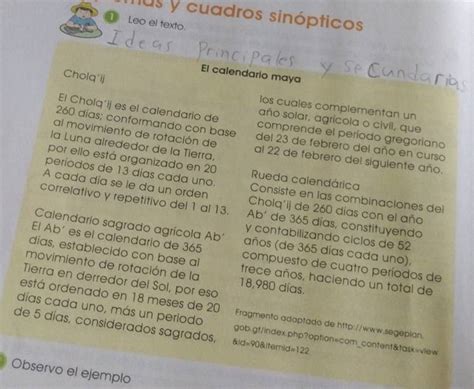 y cuadros sinópticos
1 Leo el texto.
Ideas Principales y secundarias
El calendario maya
Cholq'ij
El Cholq'ij es el calendario de
260 días; conformando con base
al movimiento de rotación de
la Luna alrededor de la Tierra,
por ello está organizado en 20
períodos de 13 días cada uno.
A cada día se le da un orden
correlativo y repetitivo del 1 al 13.
Calendario sagrado agrícola Ab'
El Ab' es el calendario de 365
días, establecido con base al
movimiento de rotación de la
Tierra en derredor del Sol, por eso
está ordenado en 18 meses de 20
días cada uno, más un período
de 5 días, considerados sagrados,
los cuales complementan un
año solar, agrícola o civil, que
comprende el período gregoriano
del 23 de febrero del año en curso
al 22 de febrero del siguiente año.
Rueda calendárica
Consiste en las combinaciones del
Cholq'ij de 260 días con el año
Ab' de 365 días, constituyendo
y contabilizando ciclos de 52
años (de 365 días cada uno),
compuesto de cuatro períodos de
trece años, haciendo un total de
18,980 días.
Fragmento adaptado de http://www.segeplan.
gob.gt/index.php?option=com_content&task=view
&id=90&Itemid=122
Observo el ejemplo